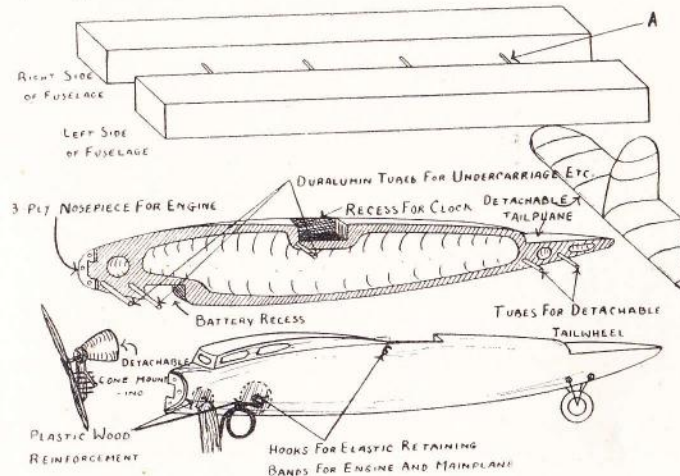 A
RIGHT SIDE
OF FUSELAGE
LEFT SIDE
OF FUSELAGE
DURALUMIN TUBES FOR UNDERCARRIAGE ETC.
3 PLY NOSEPIECE FOR ENGINE
RECESS FOR CLOCK
DETACHABLE
TAILPLANE
BATTERY RECESS
TUBES FOR DETACHABLE
TAILWHEEL
DETACHABLE
CONE MOUNT
-ING
PLASTIC WOOD
REINFORCEMENT
HOOKS FOR ELASTIC RETAINING
BANDS FOR ENGINE AND MAINPLANE